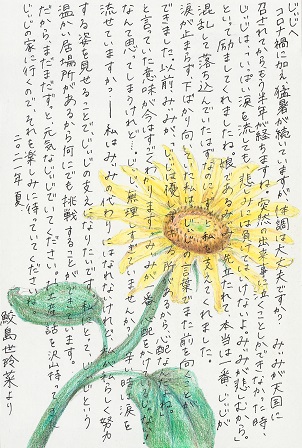 じぃじへ
コロナ禍に加え猛暑が続いていますが、体調は大丈夫ですか。みぃみが天国に
召されてからもう半年が経ちますね。突然の出来事に泣くことしかできなかった時
じぃじは、いっぱい涙を流しても、悲しみには負けてはいけないよ。みぃみが悲しむから。
といって励ましてくれましたね。娘であるみぃみに先立たれて、本当は一番じぃじが
混乱して落ち込んでいたはずなのに、私を支えてくれました。
涙が止まらず下ばかり向いていた私は、じぃじの言葉でまた前を向くことが
できました。以前みぃみが、
と言っていた意味が今はすごくわかります。みぃみが一番心配をかけているじゃない
なんて思ってしまうけど…じぃじ、無理しすぎていませんか。今、辛い時、涙を
流せていますか。私はみぃみの代わりにはなれないけれど、私がらしく努力
する姿を見せることで、じぃじの支えになりたいです。私にとって、じぃじという
温かい居場所があるから何にでも挑戦することができています。
だから、まだまだずっと元気なじぃじでいてください。お土産話を沢山持って
じぃじの家に行くので、それを楽しみに待っていてくださいね。
二〇二一年 夏
鮫島世玲菜より